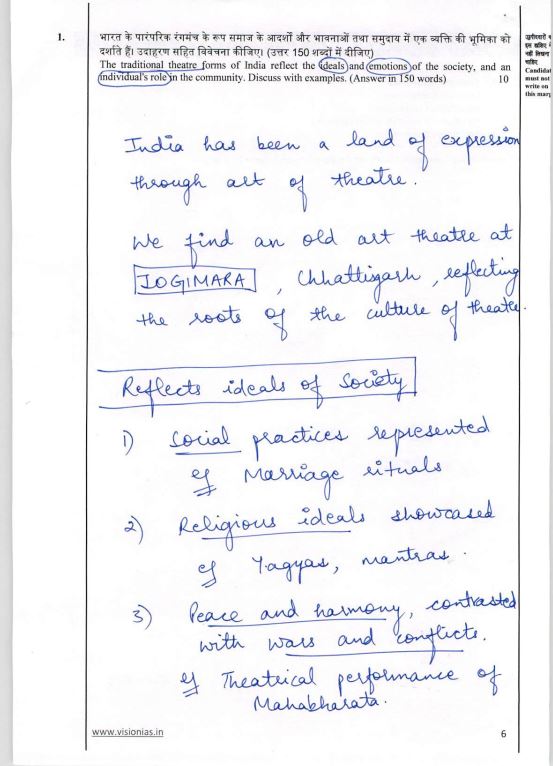 1.
भारत के पारंपरिक रंगमंच के रूप समाज के आदर्शों और भावनाओं तथा समुदाय में एक व्यक्ति की भूमिका को
दर्शाते हैं। उदाहरण सहित विवेचना कीजिए। (उत्तर 150 शब्दों में दीजिए)
The traditional theatre forms of India reflect the ideals and emotions of the society, and an
individual's role in the community. Discuss with examples. (Answer in 150 words) 10
नहीं लिखना
चाहिए
Candidat
must not
write on
this marg
India has been a land of expression
through art of theatre.
We find an old art theatre at
JOGIMARA, Chhattisgarh, reflecting
the roots of the culture of theatre.
Reflects ideals of Society
1) Social practices represented
eg Marriage rituals
2) Religious ideals showcased
eg Yagyas, mantras.
3) Peace and harmony, contrasted
with wars and conflicts.
eg Theatrical performance of
Mahabharata.
www.visionias.in 6